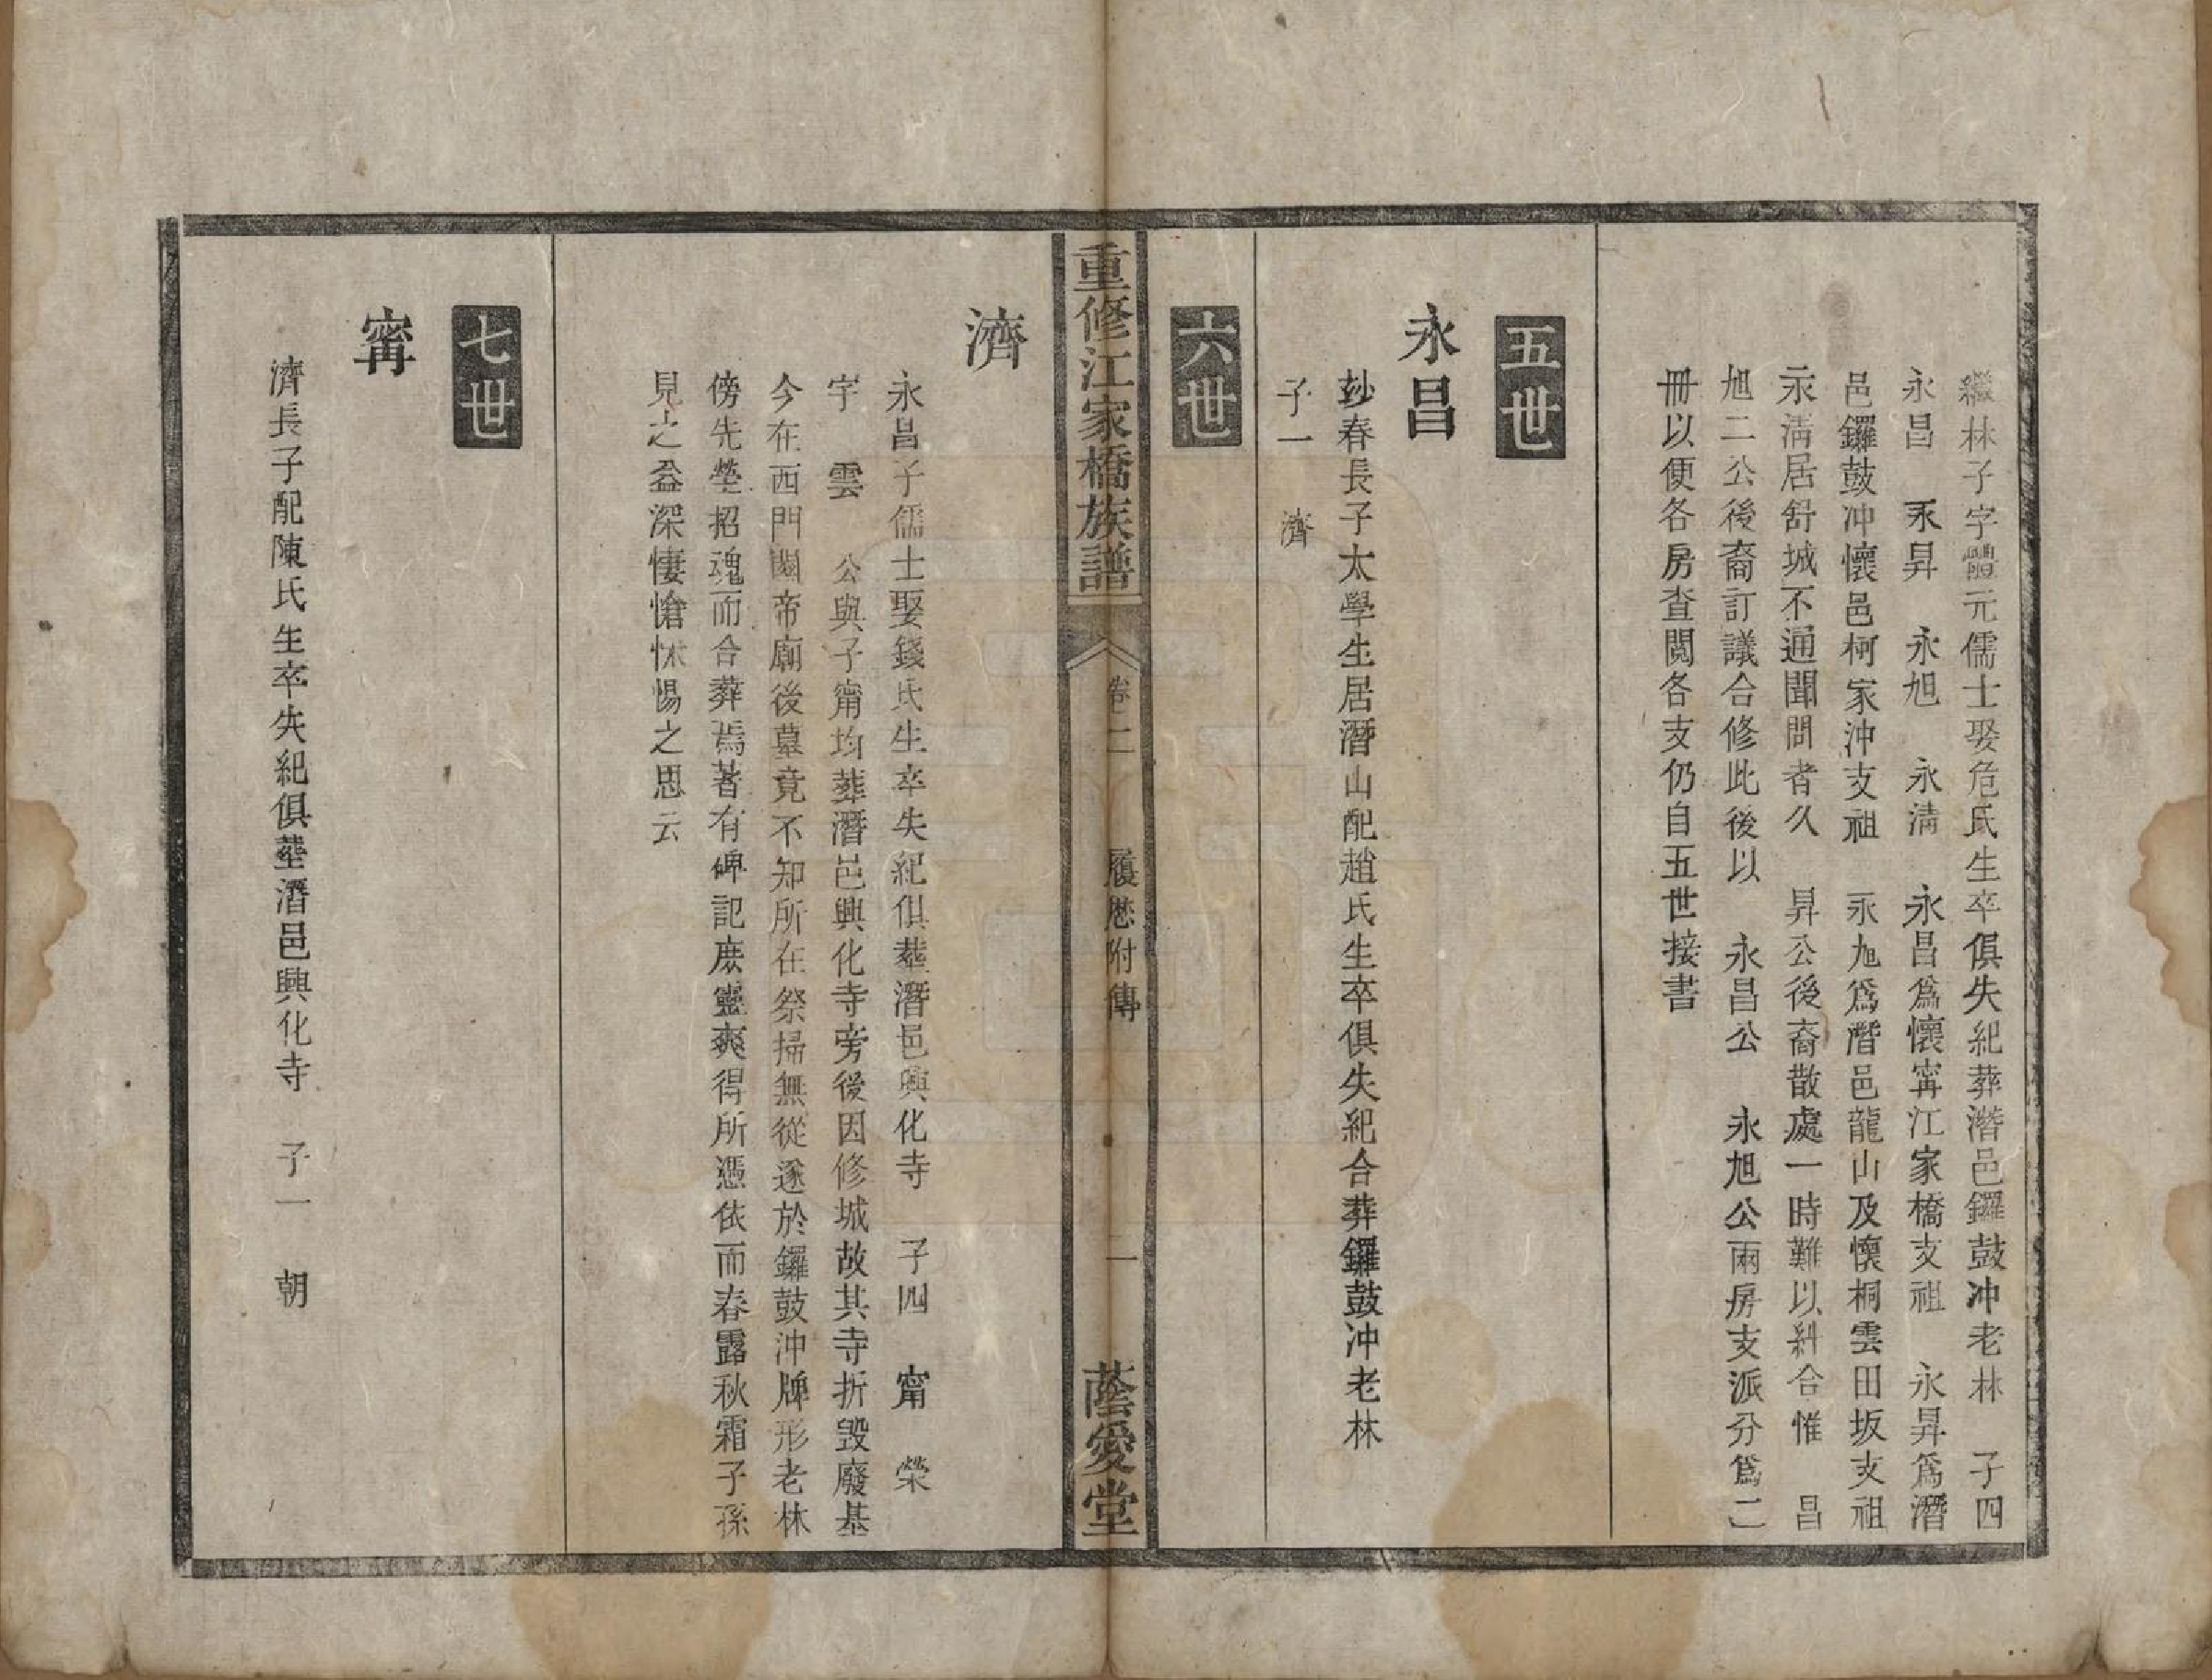 繼林子字體元儒士娶危氏生卒俱失紀葬潛邑鑼鼓冲老林 子四
永昌 永昇 永旭 永清 永昌爲懷寗江家橋支祖 永昇爲潛
邑鑼鼓冲懷邑柯家沖支祖 永旭爲潛邑龍山及懷桐雲田坂支祖
永清居舒城不通聞問者久 昇公後裔散處一時難以糾合惟 昌
旭二公後裔訂議合修此後以 永昌公 永旭公兩房支派分爲二
冊以便各房查閱各支仍自五世接書
五世
永昌
玅春長子太學生居潛山配趙氏生卒俱失紀合葬鑼鼓沖老林
子一 濟
六世
重修江家橋族譜 卷二 履歷附傳 一 蔭愛堂
濟
永昌子儒士娶錢氏生卒失紀俱塟潛邑興化寺 子四 甯 榮
宇 雲 公與子甯均葬潛邑興化寺旁後因修城故其寺折毀廢基
今在西門關帝廟後墓竟不知所在祭掃無從遂於鑼鼓沖牌形老林
傍先塋招魂而合葬焉著有碑記庶靈爽得所憑依而春露秋霜子孫
見之益深悽愴怵惕之思云
七世
寗
濟長子配陳氏生卒失紀俱塟潛邑興化寺 子一 朝